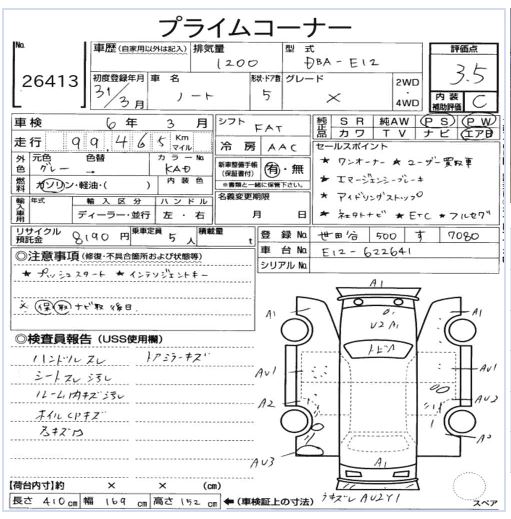 プライムコーナー
No.
26413
車歴 (自家用以外は記入)
排気量
1200
型式
DBA-E12
評価点
3.5
内装補助評価
C
初度登録年月
31/3月
車名
ノート
形状・ドア数
5
グレード
×
2WD
・4WD
車検 6年 3月
シフト FAT
純正品 SR 純AW PS PW
カワ TV ナビ エアB
走行 99,465 Km
マイル
冷房 AAC
セールスポイント
★ ワンオーナー ★ ユーザー買取車
★ エマージェンシーブレーキ
★ アイドリングストップ
★ ETC ★ フルセグ
外色 元色 グレー 色替 カラーNo. KAD
燃料 ガソリン・軽油・( ) 内装色
新車整備手帳(保証書付) 有・無
※書類と一緒に保管下さい。
名義変更期限
月 日
輸入車用 年式 輸入区分 ハンドル
ディーラー・並行 左・右
リサイクル預託金 8190円 乗車定員 5人 積載量 t
登録No. 世田谷 500 す 7080
車台No. E12-622641
シリアルNo.
◎注意事項 (修復・不具合箇所および状態等)
★ プッシュスタート ★ インテリジェントキー
※ 保取ナビ取後日
◎検査員報告 (USS使用欄)
ハンドルスレ ドアミラーキズ
シートスレ汚れ
ルーム内キズ汚れ
ホイルCPキズ
A1
A1
A1
U2 A1
AU1
AU1
A2
AU1
A2
AU3
A1
AU2Y1
スペア
【荷台内寸】約 × × (cm)
長さ 410cm 幅 169cm 高さ 152cm ←(車検証上の寸法)